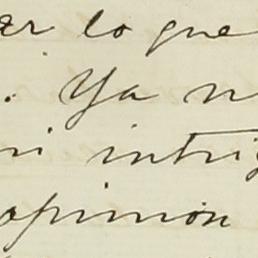 er lo que
. Ya n
ni intrig
opinion